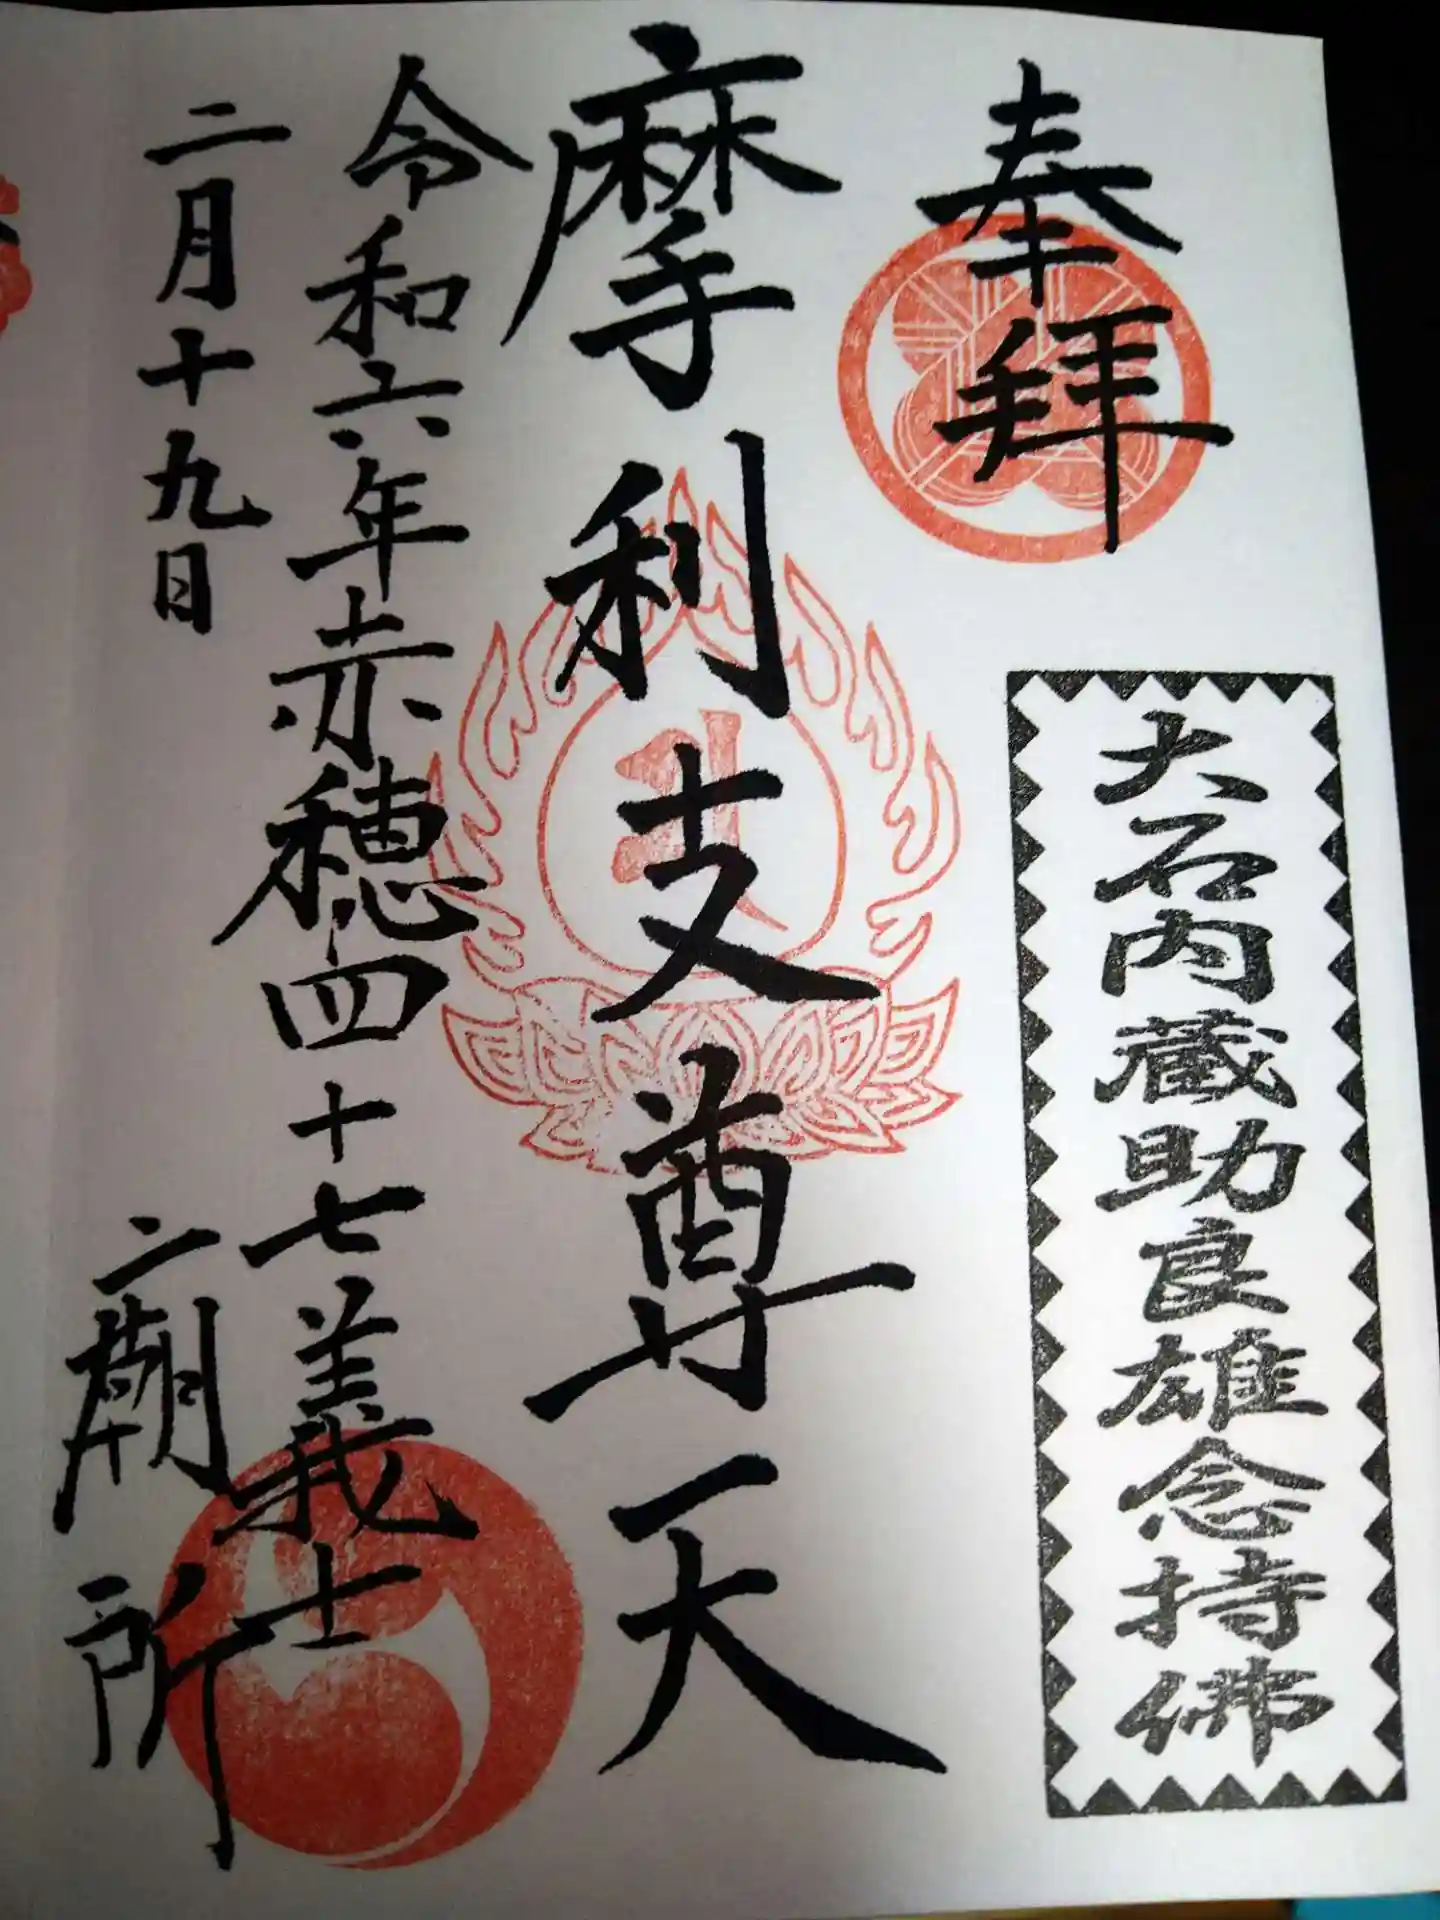 奉拜
大石内蔵助良雄念持佛
摩利支尊天
令和六年赤穂四十七義士
二月十九日
廟所